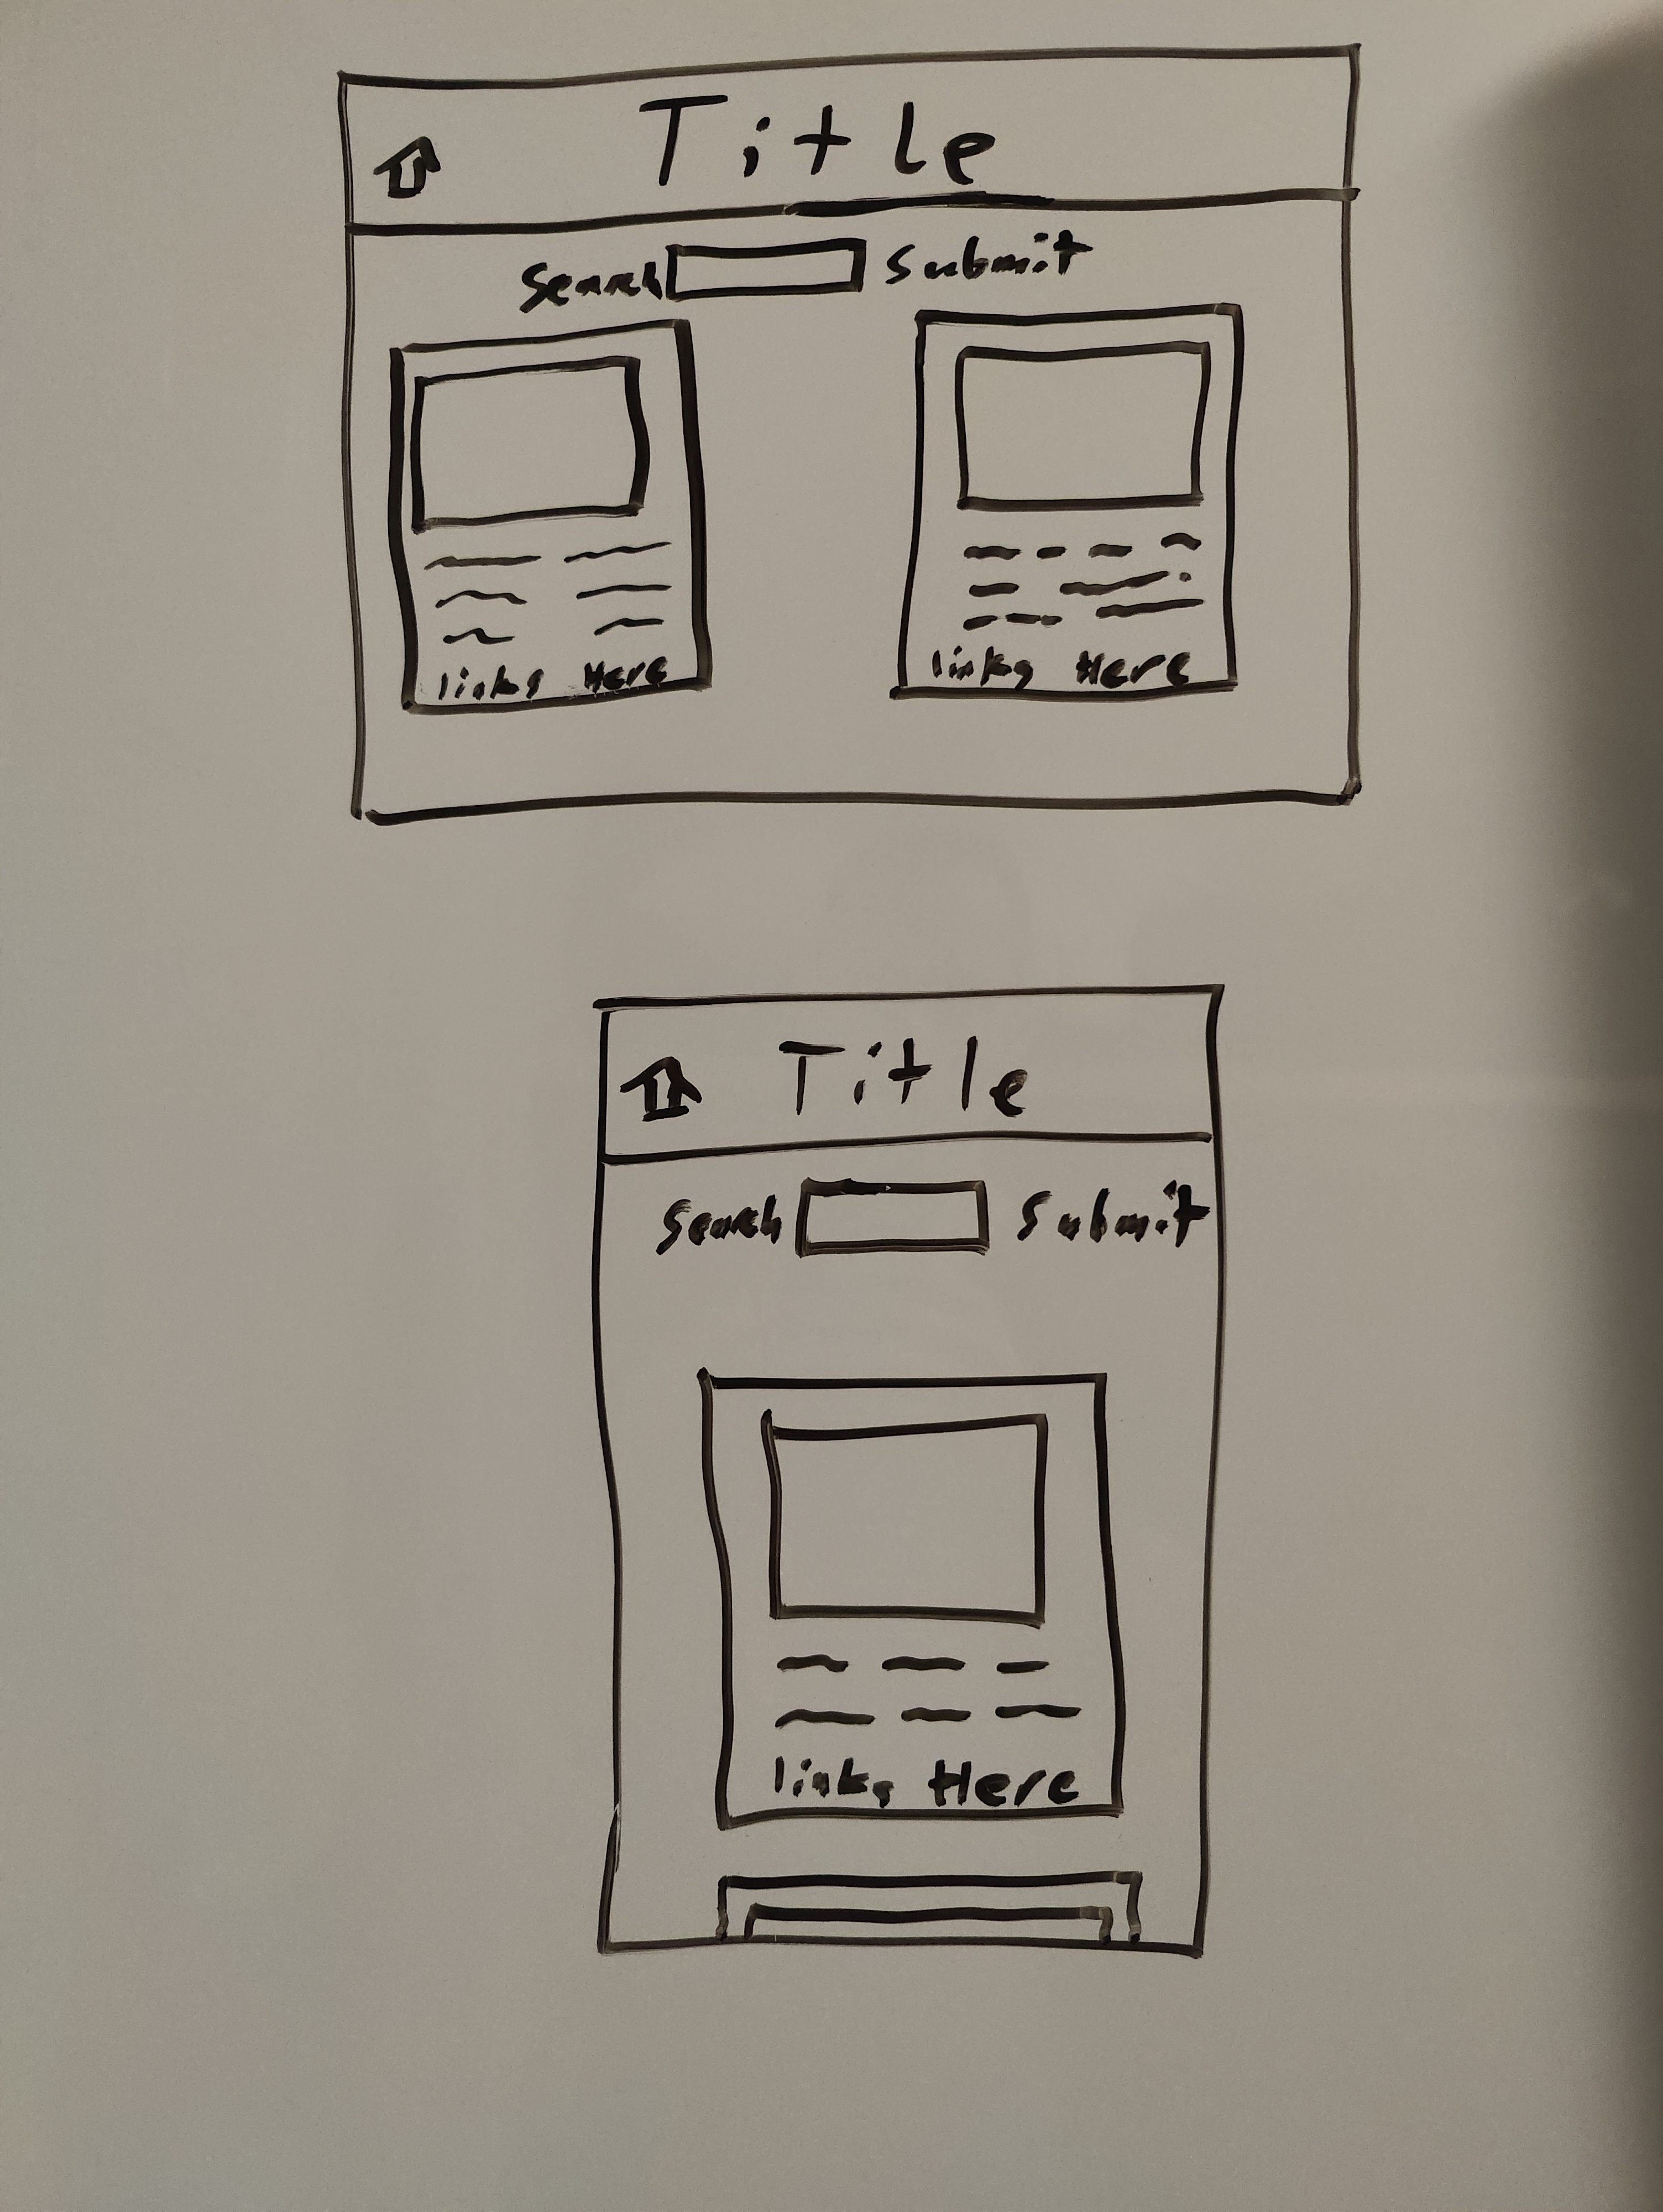 Title
Search Submit
links Here
links Here
Title
Search Submit
links Here